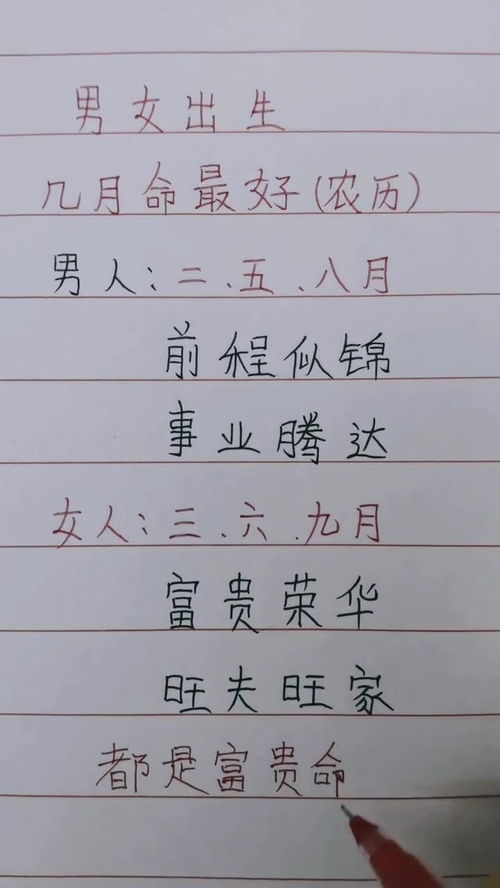 男女出生
几月命最好(农历)
男人:二、五、八月
前程似锦
事业腾达
女人:三、六、九月
富贵荣华
旺夫旺家
都是富贵命